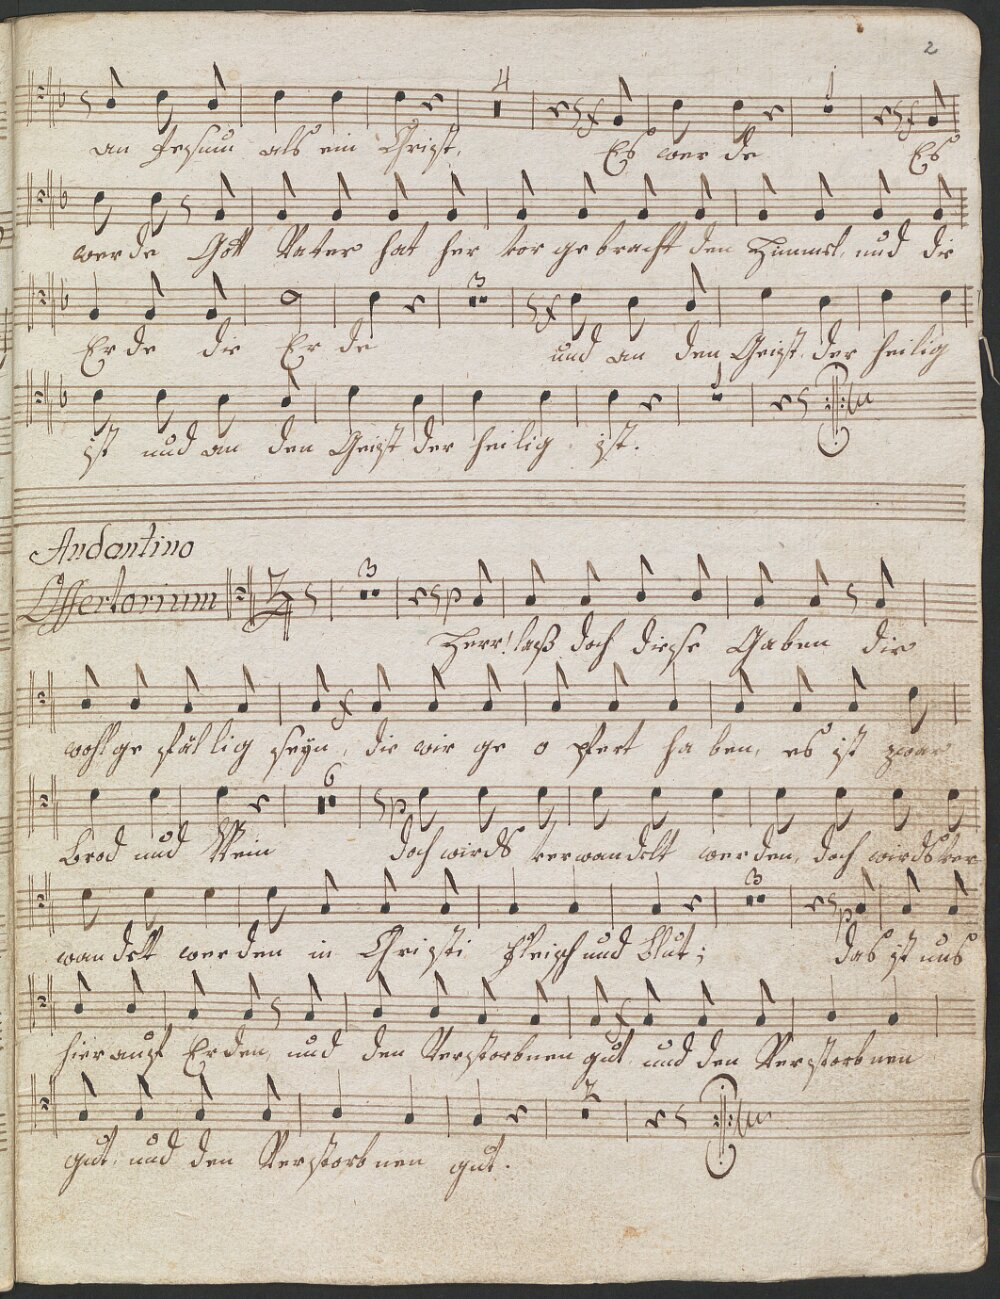 2
4
an Jesum als ein Christ, Es werde Es
werde Gott Vater hat her vor gebracht den Himmel, und die
3
Erde die Erde und an den Geist, der heilig
ist und an den Geist der heilig ist.
Andantino
Offertorium
3
p
Herr! laß doch diese Gaben die
wohlgefällig seyn, die wir ge o pfert haben, es ist zwar
6
p
Brod und Wein doch wirds verwandelt werden, doch wirds ver
3
p
wandelt werden in Christi Fleisch und Blut; das ist uns
hier auf Erden, und den Verstorbnen gut und den Verstorbnen
2
gut, und den Verstorbnen gut.